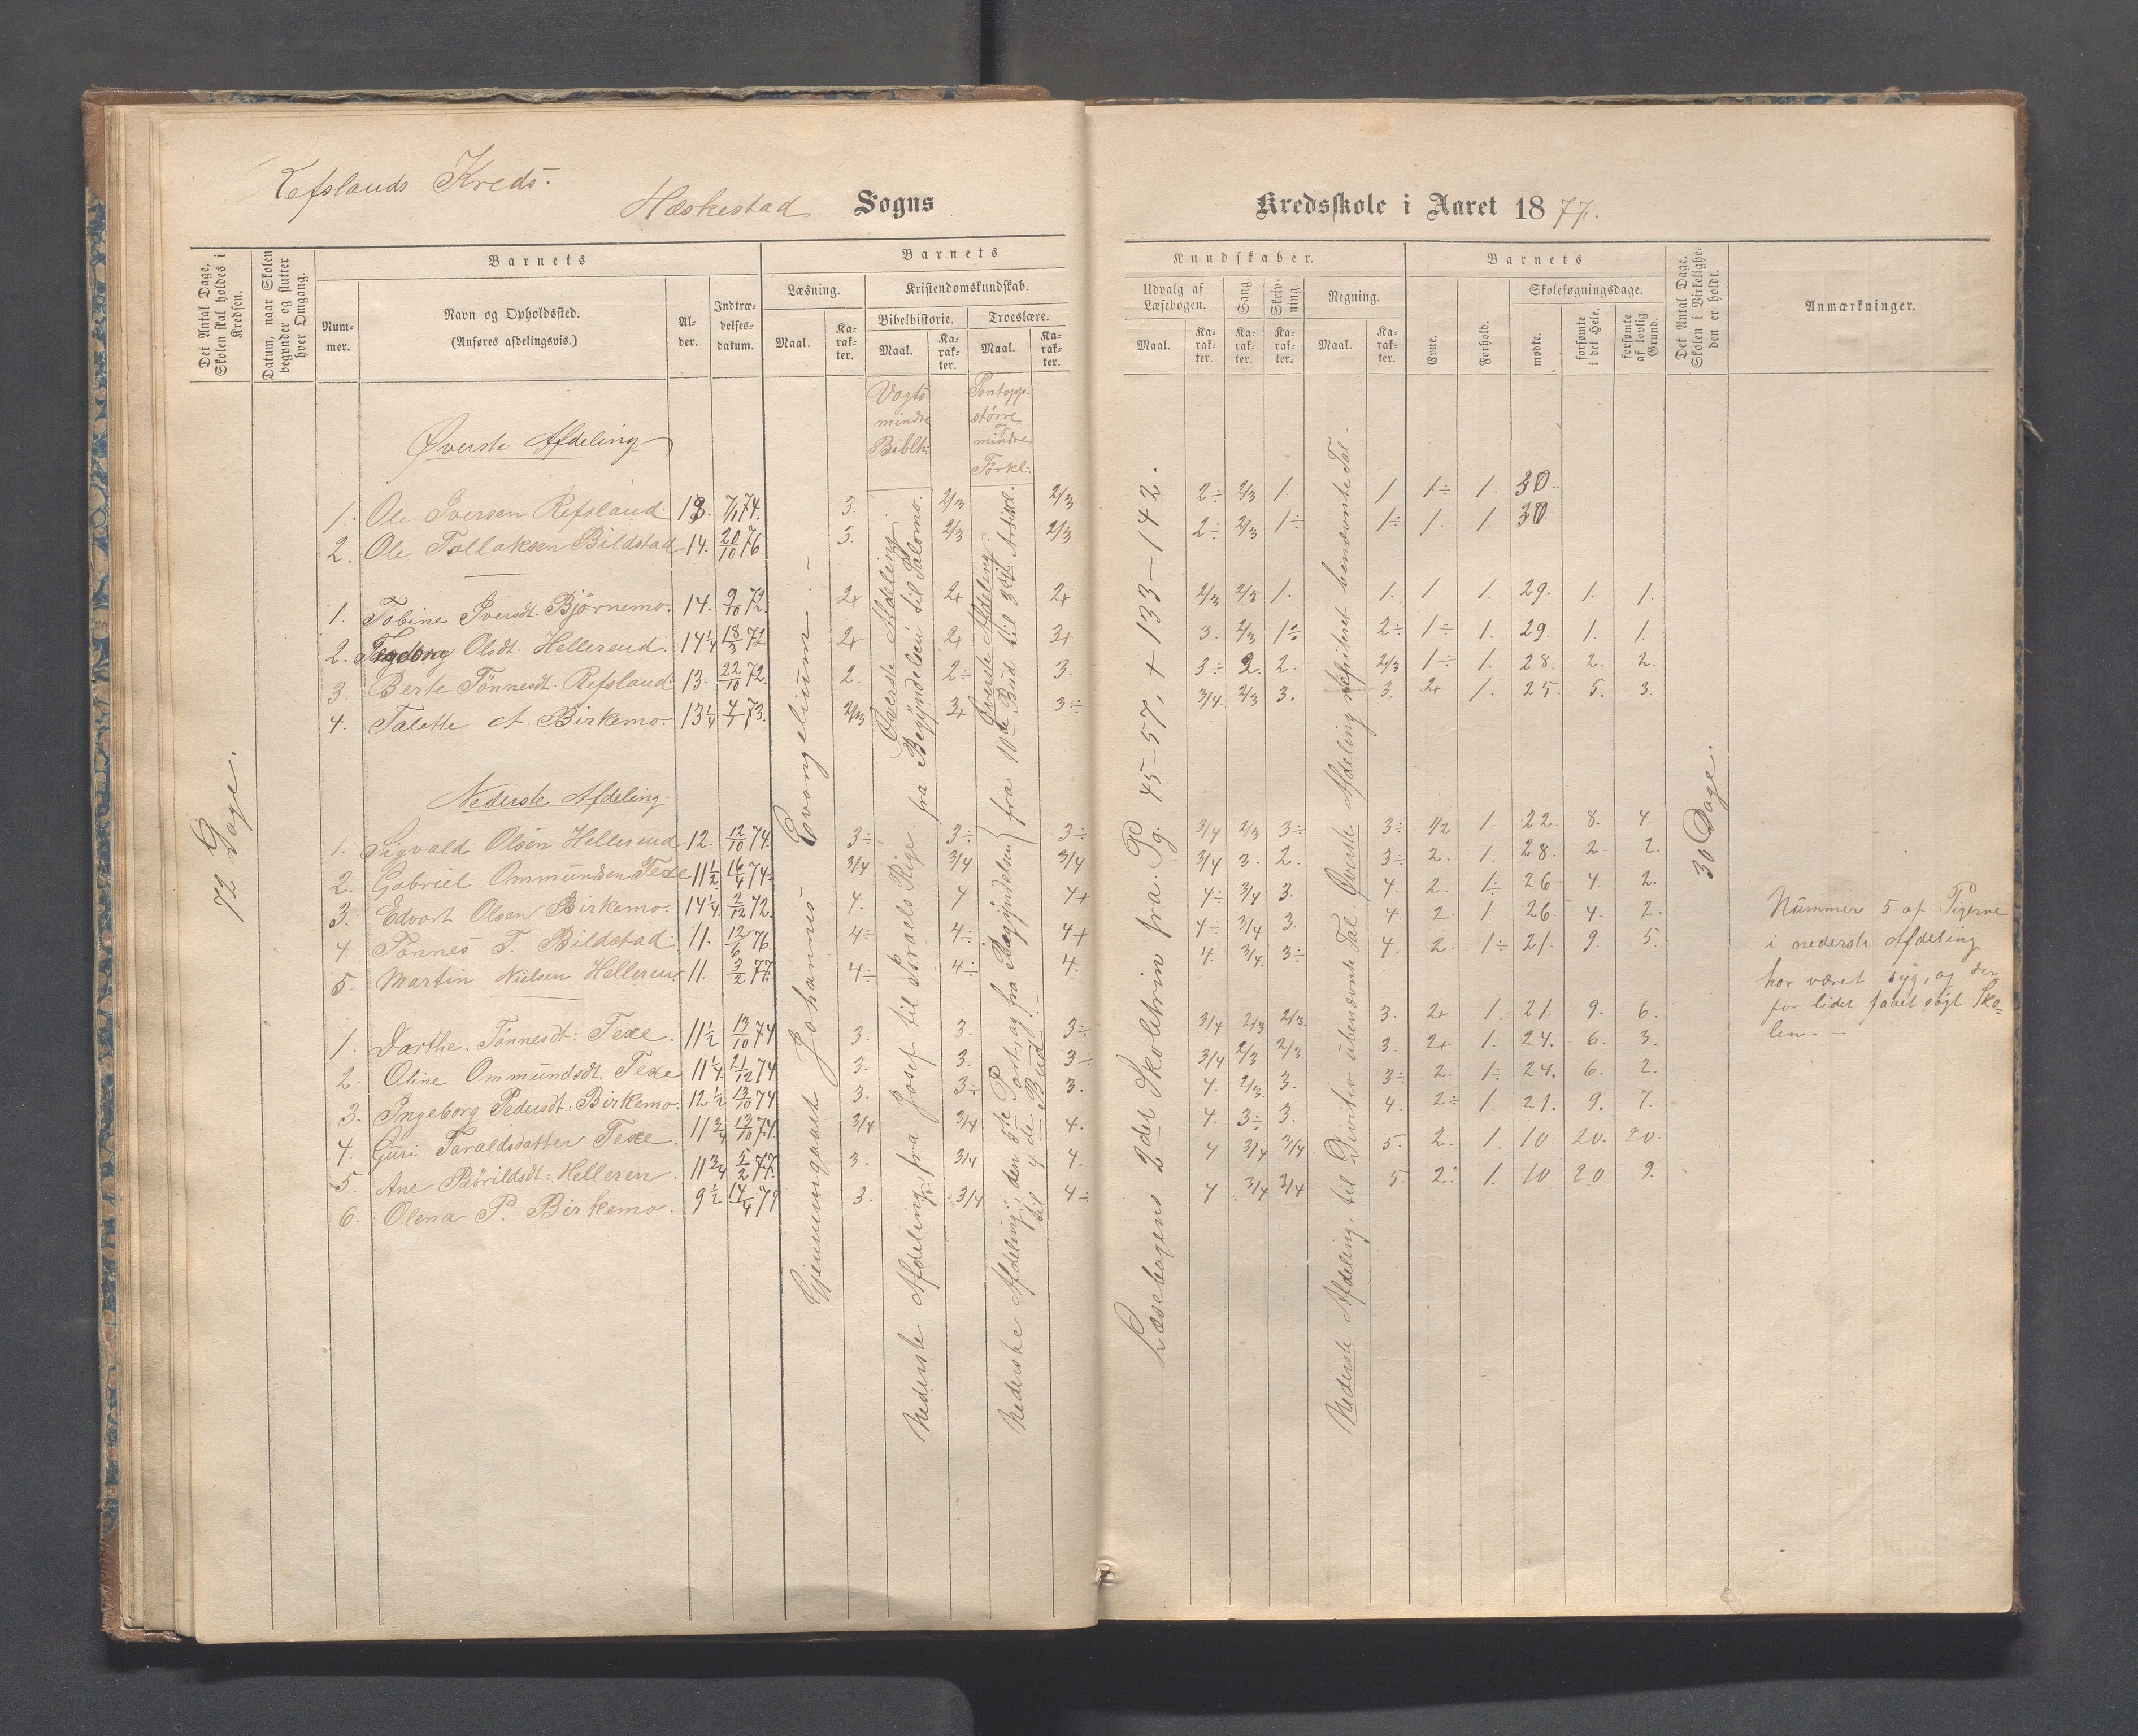 Refslands Kreds.
Heskestad Sogns
Kredsskole i Aaret 1877.
Det Antal Dage, Skolen skal holdes i Kredsen.
Datum, naar Skolen begynder og slutter hver Omgang.
Barnets
Nummer.
Navn og Opholdssted.
(Anføres afdelingsvis.)
Alder.
Indtrædelsesdatum.
Barnets
Læsning.
Maal.
Karakter.
Kristendomskundskab.
Bibelhistorie.
Maal.
Karakter.
Troeslære.
Maal.
Karakter.
Kundskaber.
Udvalg af Læsebogen.
Maal.
Karakter.
Sang.
Karakter.
Skrivning.
Karakter.
Regning.
Maal.
Karakter.
Barnets
Evne.
Forhold.
Skolesøgningsdage.
mødte.
forsømte i det Hele.
forsømte af lovlig Grund.
Det Antal Dage, Skolen i Virkeligheden er holdt.
Anmærkninger.
Vogts mindre Biblh:
Pontopp. større og mindre Forkl:
Øverste Afdeling
1. Ole Iversen Refsland. 13. 7/1 74. 3. 2/3 2/3 2÷ 2/3 1. 1 1÷ 1. 30.
2. Ole Tollaksen Bildstad 14. 20/10 76 3. 2/3 2/3 2÷ 2/3 1÷ 1÷ 1. 1. 30.
1. Tobine Iversdt. Bjørnemo. 14. 9/10 72. 2+ 2+ 2+ 2/3 2/3 1. 1. 1. 1. 29. 1. 1.
2. Ingeborg Olsdt. Hellerend. 14 1/4 18/3 72 2+ 2+ 3+ 3. 2/3 1÷ 2÷ 1÷ 1. 29. 1. 1.
3. Berte Tønnesdt. Refsland. 13. 22/10 72. 2. 2÷ 3. 3÷ 2. 2. 2/3 1÷ 1. 28. 2. 2.
4. Talette A. Birkemo. 13 1/4 4/1 73. 2/3 3+ 3÷ 3/4 2/3 3. 3. 2+ 1. 25. 5. 3.
Nederste Afdeling.
1. Sigvald Olsen Hellerend 12. 12/10 74. 3÷ 3÷ 3÷ 3/4 2/3 3÷ 3÷ 1/2 1. 22. 8. 4.
2. Gabriel Ommundsen Texe 11 1/2 16/4 74. 3/4 3/4 3/4 3/4 3. 2. 3÷ 2. 1. 28. 2. 2.
3. Edvart Olsen Birkemo. 14 1/4 2/12 72. 4. 4 4+ 4÷ 3/4 3. 4. 2. 1÷ 26 4. 2.
4. Tønnes T. Bildstad. 11. 12/6 76. 4÷ 4÷ 4+ 4÷ 3/4 3. 4. 2. 1. 26. 4. 2.
5. Martin Nielsen Helleren. 11. 3/2 77. 4÷ 4÷ 4. 4. 3/4 3÷ 4. 2. 1÷ 21. 9. 5.
1. Darthe Tønnesdt: Texe. 11 1/2 13/10 74 3. 3. 3÷ 3/4 2/3 2/3. 3. 2+ 1. 21. 9. 6.
2. Oline Ommundsdt. Texe 11 1/4 21/12 74 3. 3. 3÷ 3/4 2/3 2/3. 3. 2+ 1. 24. 6. 3.
3. Ingeborg Pedersdt: Birkemo. 12 1/2 13/10 74 3. 3÷ 3. 4. 2/3. 3. 3÷ 2. 1÷ 24. 6. 2.
4. Guri Taraldsdatter Texe. 11 3/4 13/10 74. 3/4 3/4 4. 4. 3÷ 3. 4. 2÷ 1. 21. 9. 7.
5. Ane Børildsdt: Helleren. 11 3/4 5/2 77. 3. 3/4 4. 4. 3/4 3/4 5. 2. 1. 10 20. 20.
6. Olena P. Birkemo. 9 1/2 14/4 77 3. 3/4 4÷ 4 3/4 3/4 5. 2. 1. 10 20 9.
72 Dage.
Gjennemgaaet Johannes Evangelium. –
Øverste Afdeling fra Begyndelsen til Salomo.
Nederste Afdeling, fra Josef til Israels Rige.
Øverste Afdeling fra 10de Bud til 3die Artikl.
Nederske Afdeling; den 5te Part, og fra Begyndelsen til 4de Bud. –
Læsebogens 2det Skoletrin fra Pg. 45–57, + 133–142.
Øverste Afdeling repiteret benævnte Tal.
Nederste Afdeling, til Divitio ubenævnte Tal.
30 Dage.
Nummer 5 af Pigerne
i nederste Afdeling
har været syg, og der
for lidet faaet søgt Sko-
len. –